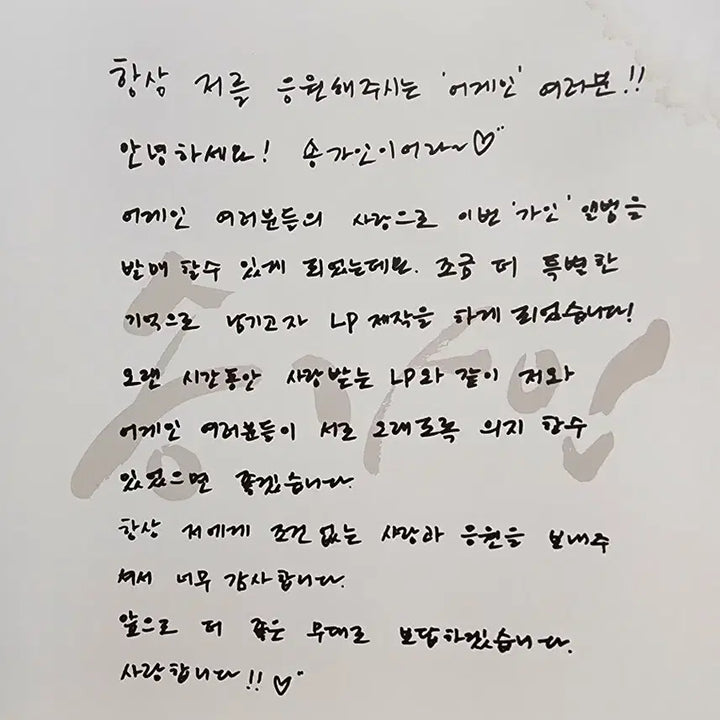 항상 저를 응원해주시는 '어게인' 여러분!!
안녕하세요! 송가인이어라~♡
어게인 여러분들의 사랑으로 이번 '가인' 앨범을
발매 할수 있게 되었는데요. 조금 더 특별한
기억으로 남기고자 LP 제작을 하게 되었습니다!
오랜 시간동안 사랑받는 LP와 같이 저와
어게인 여러분들이 서로 오래도록 의지 할수
있었으면 좋겠습니다.
항상 저에게 조건 없는 사랑과 응원을 보내주
셔서 너무 감사합니다.
앞으로 더 좋은 무대로 보답하겠습니다.
사랑합니다!! ♡
송가인